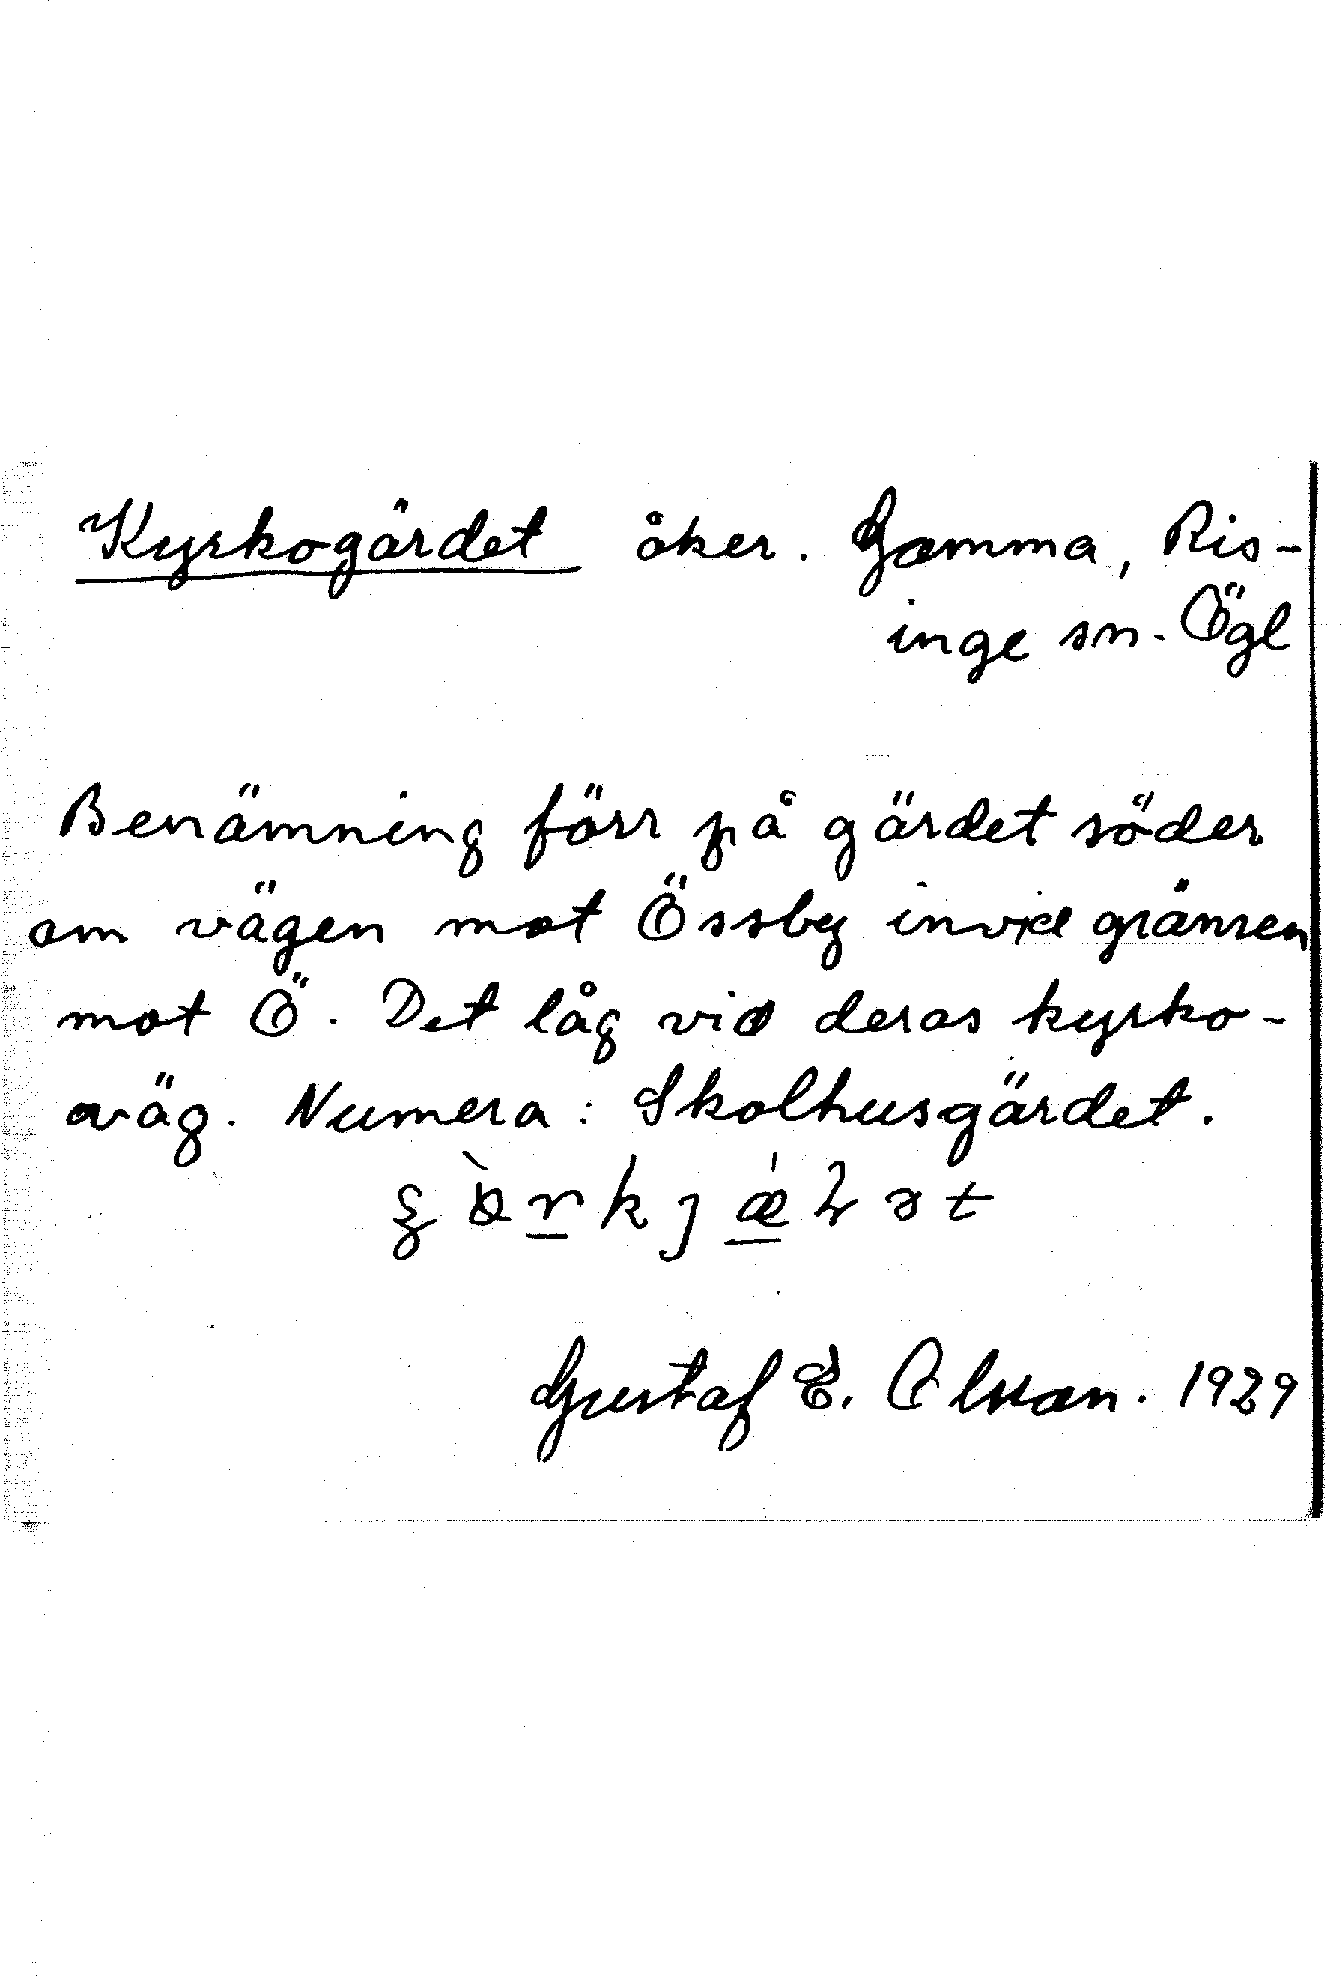 Kyrkogärdet åker. Gamma, Ris-
inge sn. Ögl
Benämning förr på gärdet söder
om vägen mot Össby invid gränsen
mot Ö. Det låg vid deras kyrko-
väg. Numera: Skolhusgärdet.
Gustaf E. Olsson. 1929